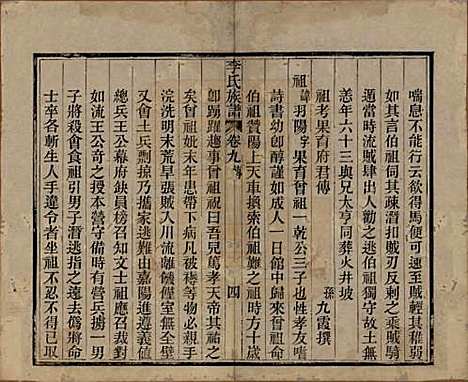 喘息不能行云欲得馬便可速至賊輕其稚弱
如其言伯祖伺其疎潛扣賊刃反剸之乘賊騎
遁當流賊肆出人勸之逃伯祖獨守故土無
恙年六十三與兄太亨同葬火井坡
祖考果育府君傳
孫九霞撰
祖諱羽陽字果育曾祖一乾公三子也性孝友嗜
詩書幼卽醇謹如成人一日館中歸來曾祖命
伯祖賛陽上天車搷索伯祖難之祖時方十歲
卽踴躍趨事曾祖妣曰吾兒篤孝天帝其祐之
矣曾祖妣末年患帶下病凡破褥等物必親手
浣洗明末荒旱張賊入川流離饑饉室無全壁
又曾土兵剽掠乃攜家逃難由嘉陽進遵義値
總兵王公幕府缺員榜召文士祖應召裁對
如流王公奇之授本營守備時有營兵擄一男
將殺會食祖引男子潛逃指其去路事覺主令
士卒各斬生人手違令者坐祖不忍不得已取
李氏族譜
卷九
傳
四